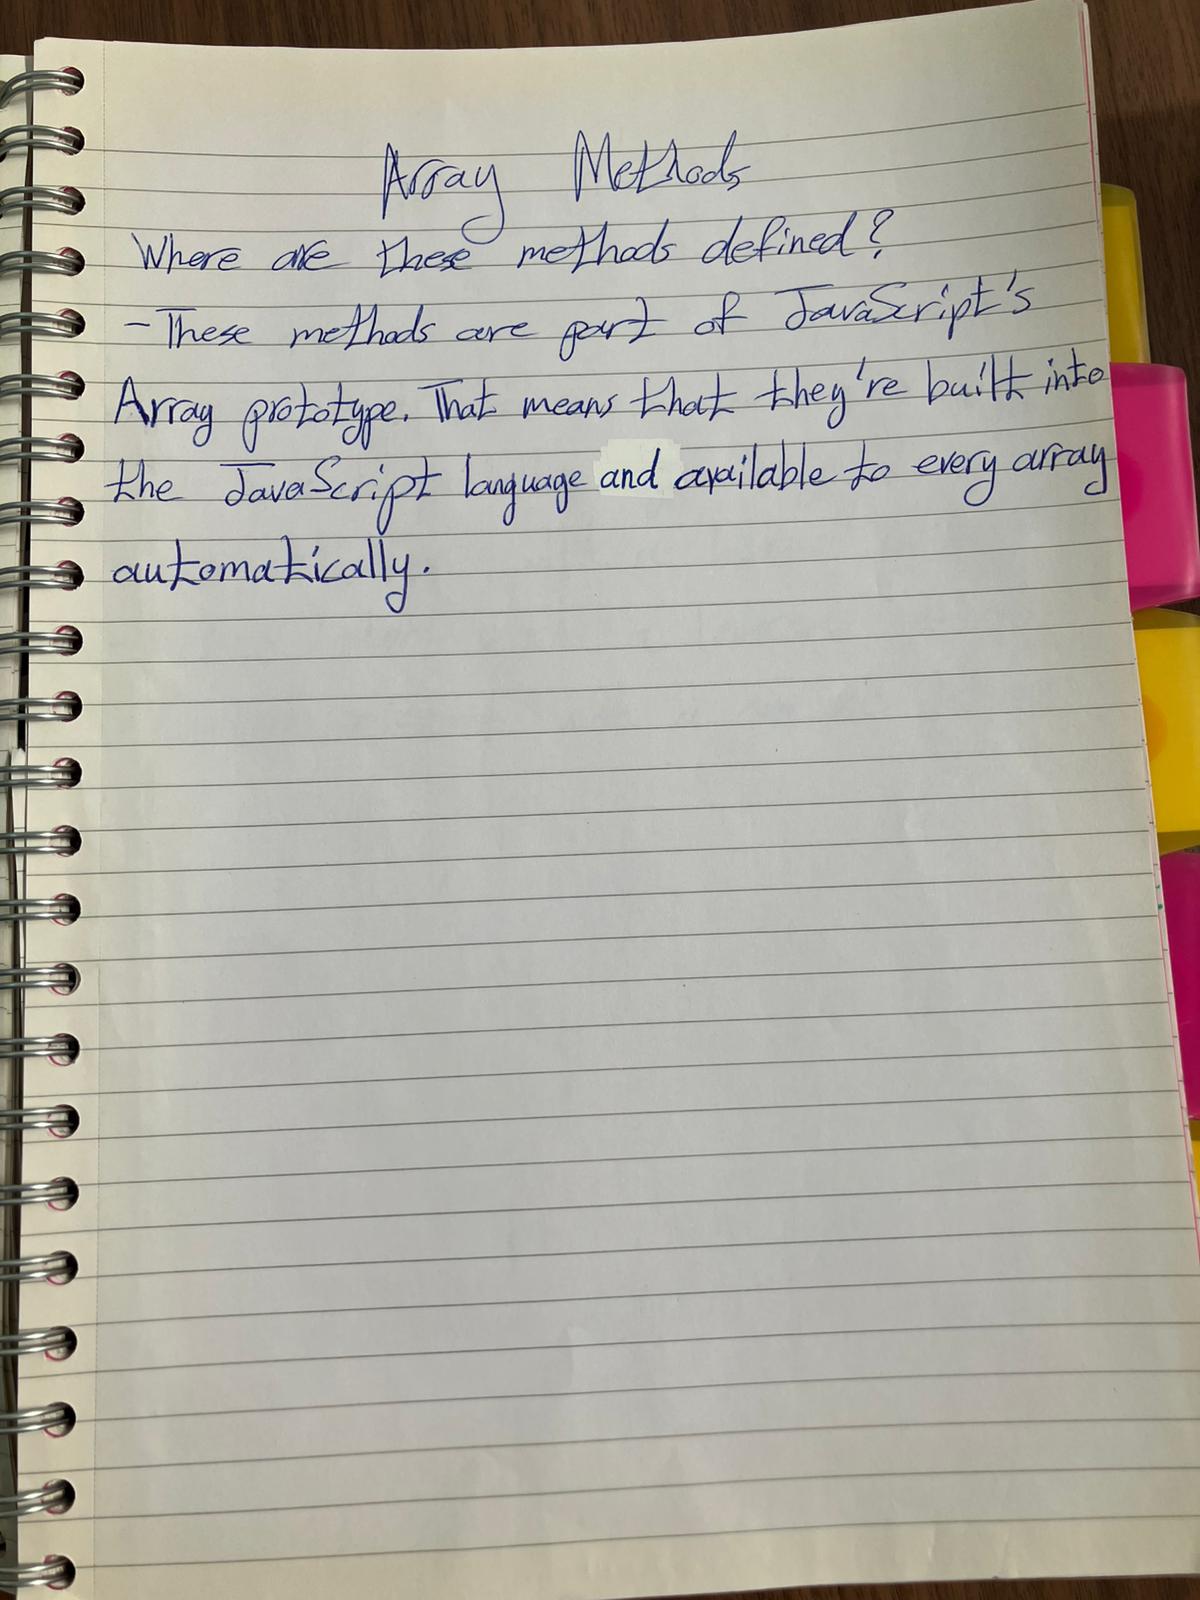 Array Methods
Where are these methods defined?
- These methods are part of JavaScript's
Array prototype. That means that they're built into
the JavaScript language and available to every array
automatically.